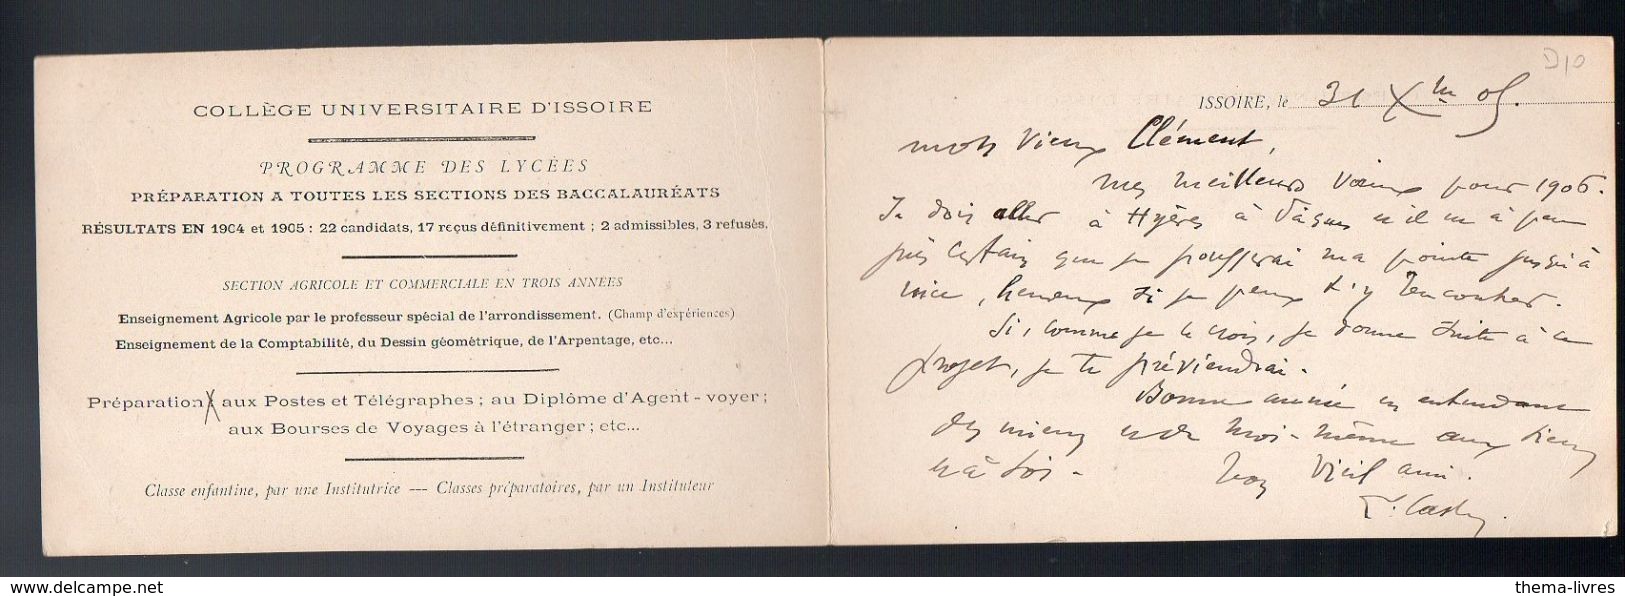 COLLÈGE UNIVERSITAIRE D'ISSOIRE
PROGRAMME DES LYCÉES
PRÉPARATION A TOUTES LES SECTIONS DES BACCALAURÉATS
RÉSULTATS EN 1904 et 1905 : 22 candidats, 17 reçus définitivement ; 2 admissibles, 3 refusés.
SECTION AGRICOLE ET COMMERCIALE EN TROIS ANNÉES
Enseignement Agricole par le professeur spécial de l'arrondissement. (Champ d'expériences)
Enseignement de la Comptabilité, du Dessin géométrique, de l'Arpentage, etc...
Préparation X aux Postes et Télégraphes ; au Diplôme d'Agent-voyer ;
aux Bourses de Voyages à l'étranger ; etc...
Classe enfantine, par une Institutrice — Classes préparatoires, par un Instituteur
D10
ISSOIRE, le 31 Xbre 05.
mon vieux Clément,
mes meilleurs vœux pour 1906.
Je dois aller à Hyères à Pâques et il est à peu
près certain que je pousserai ma pointe jusqu'à
nice, heureux si je peux t'y rencontrer.
Si, comme je le crois, je donne suite à ce
projet, je te préviendrai.
Bonne année en entendant
des miens et de moi-même aux tiens
et à toi - Ton vieil ami.
thema-livres
www.delcampe.net